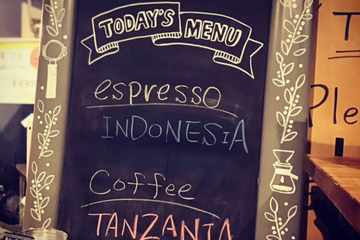 TODAY'S MENU
espresso
INDONESIA
Coffee
TANZANIA
T
Ple